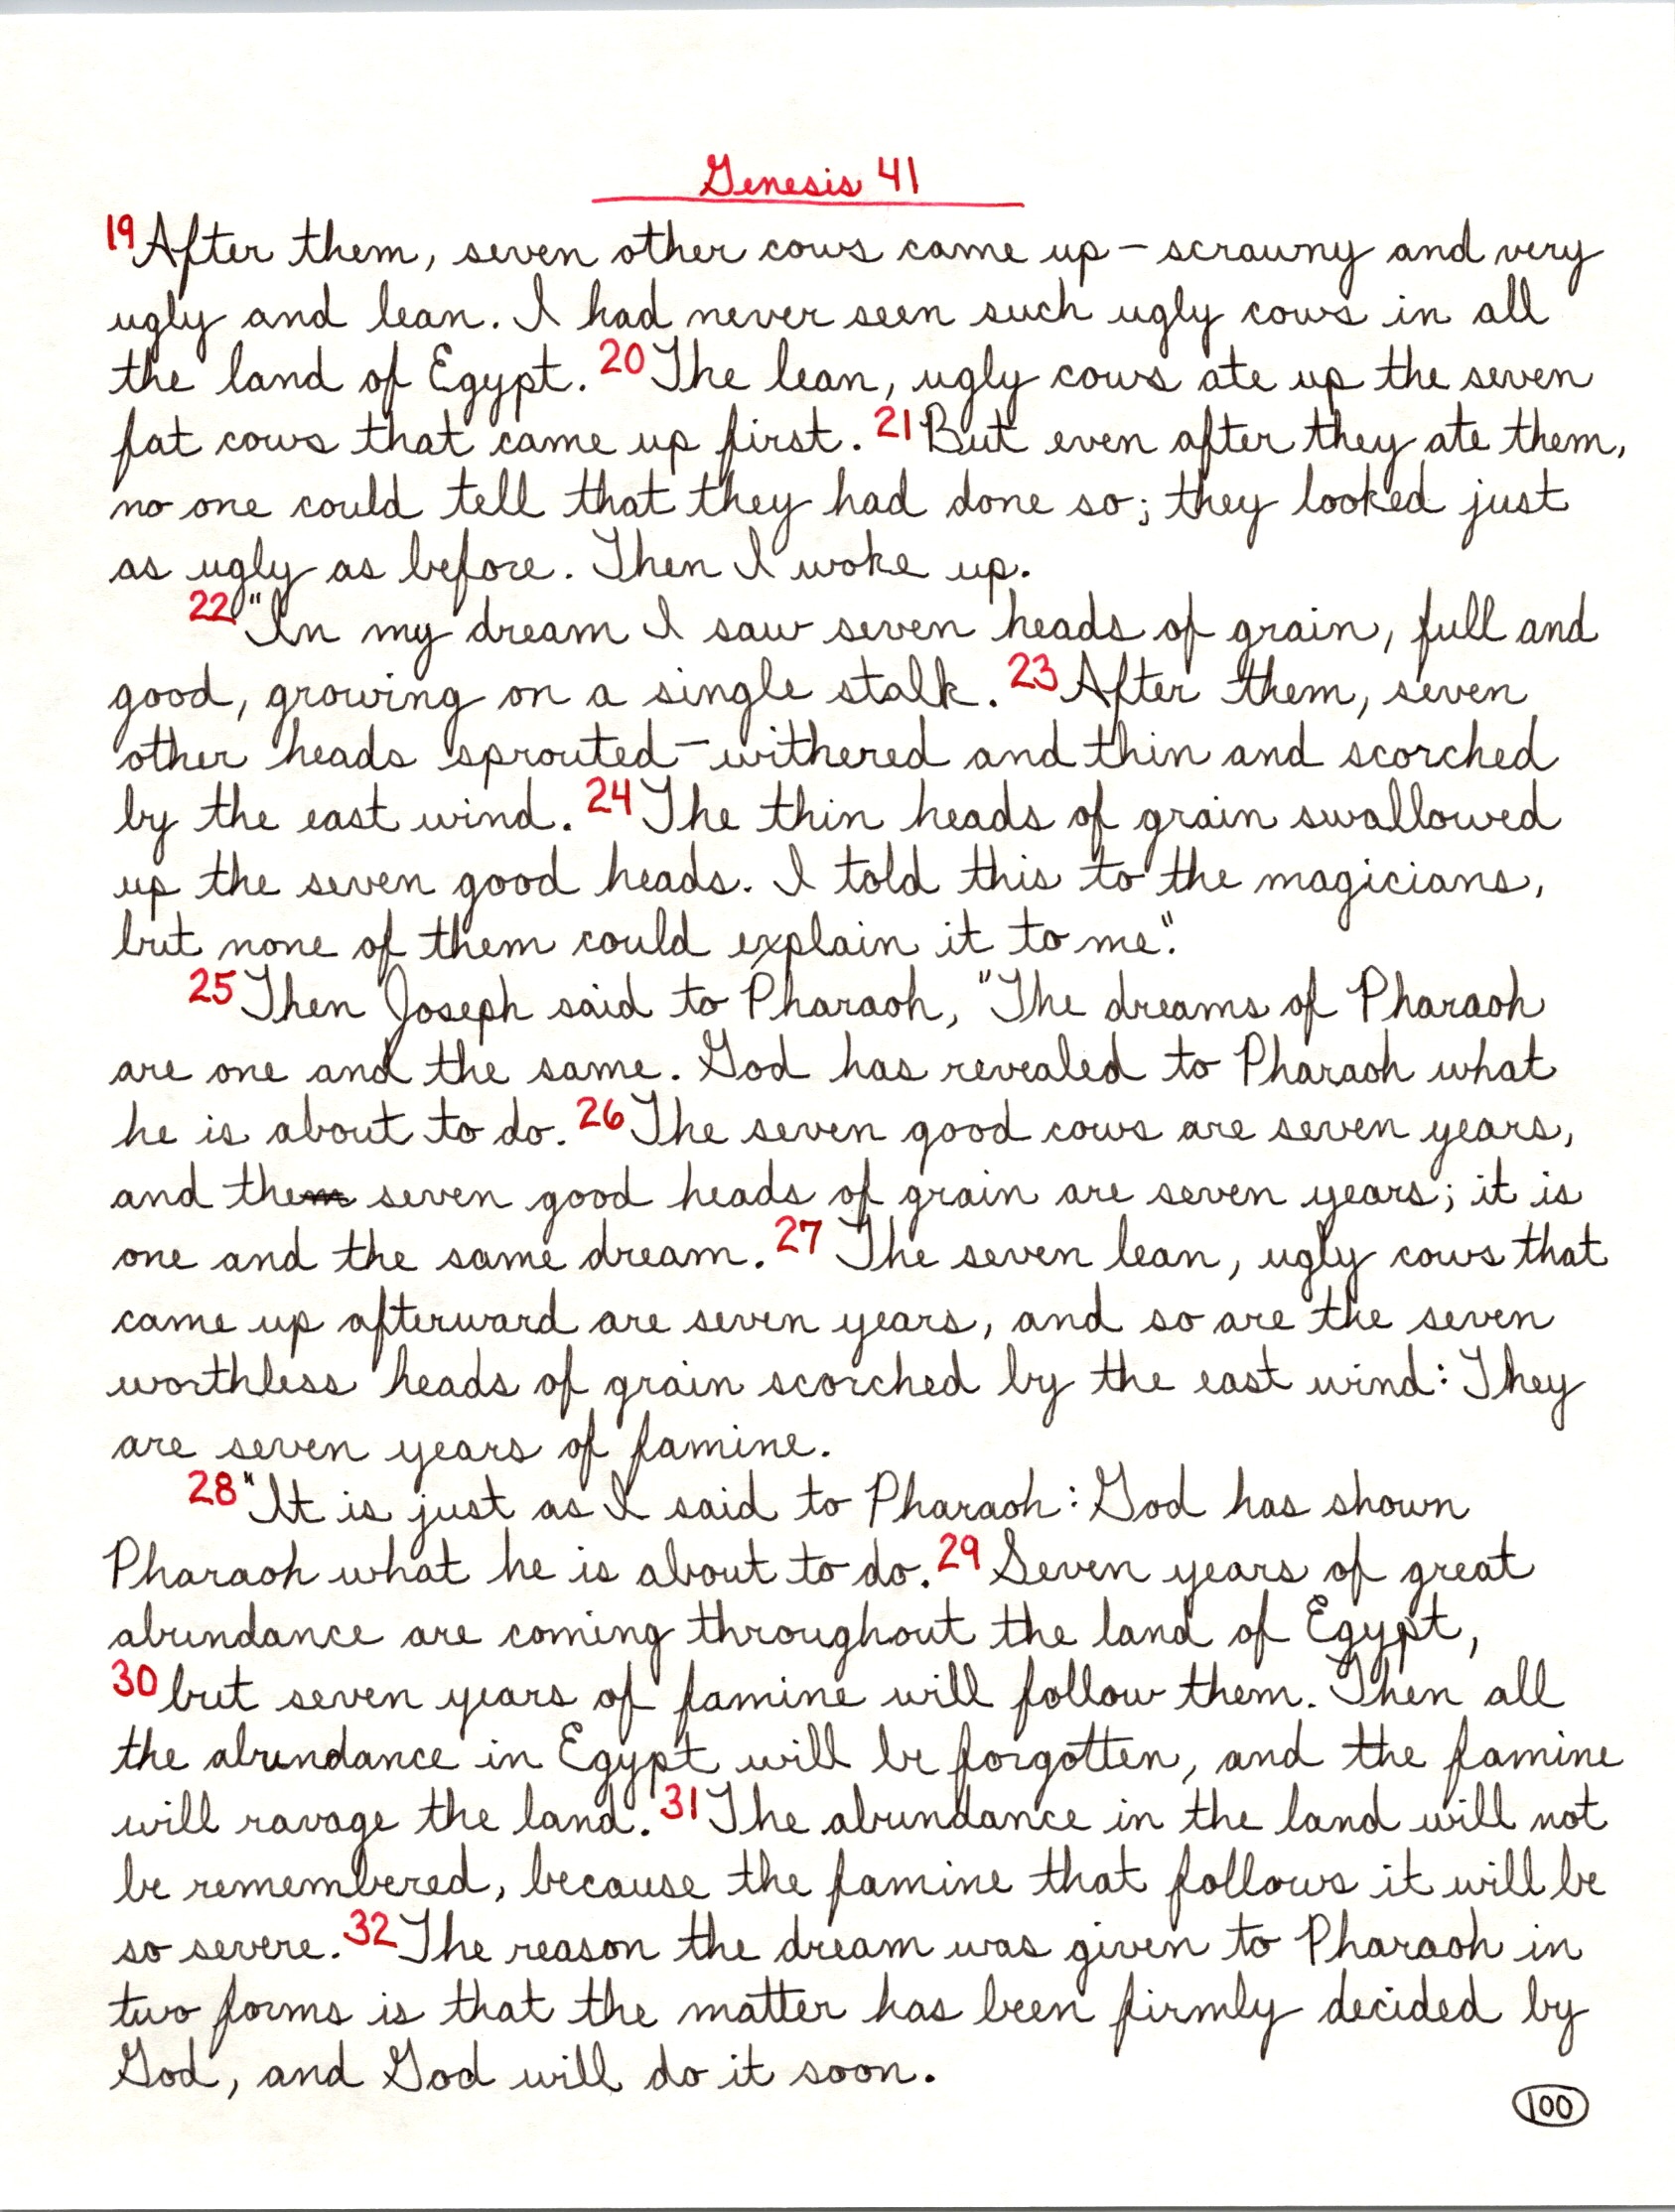 Genesis 41
19 After them, seven other cows came up – scrawny and very
ugly and lean. I had never seen such ugly cows in all
the land of Egypt. 20 The lean, ugly cows ate up the seven
fat cows that came up first. 21 But even after they ate them,
no one could tell that they had done so; they looked just
as ugly as before. Then I woke up.
22 "In my dream I saw seven heads of grain, full and
good, growing on a single stalk. 23 After them, seven
other heads sprouted – withered and thin and scorched
by the east wind. 24 The thin heads of grain swallowed
up the seven good heads. I told this to the magicians,
but none of them could explain it to me."
25 Then Joseph said to Pharaoh, "The dreams of Pharaoh
are one and the same. God has revealed to Pharaoh what
he is about to do. 26 The seven good cows are seven years,
and the seven good heads of grain are seven years; it is
one and the same dream. 27 The seven lean, ugly cows that
came up afterward are seven years, and so are the seven
worthless heads of grain scorched by the east wind: They
are seven years of famine.
28 "It is just as I said to Pharaoh: God has shown
Pharaoh what he is about to do. 29 Seven years of great
abundance are coming throughout the land of Egypt,
30 but seven years of famine will follow them. Then all
the abundance in Egypt will be forgotten, and the famine
will ravage the land. 31 The abundance in the land will not
be remembered, because the famine that follows it will be
so severe. 32 The reason the dream was given to Pharaoh in
two forms is that the matter has been firmly decided by
God, and God will do it soon.
100